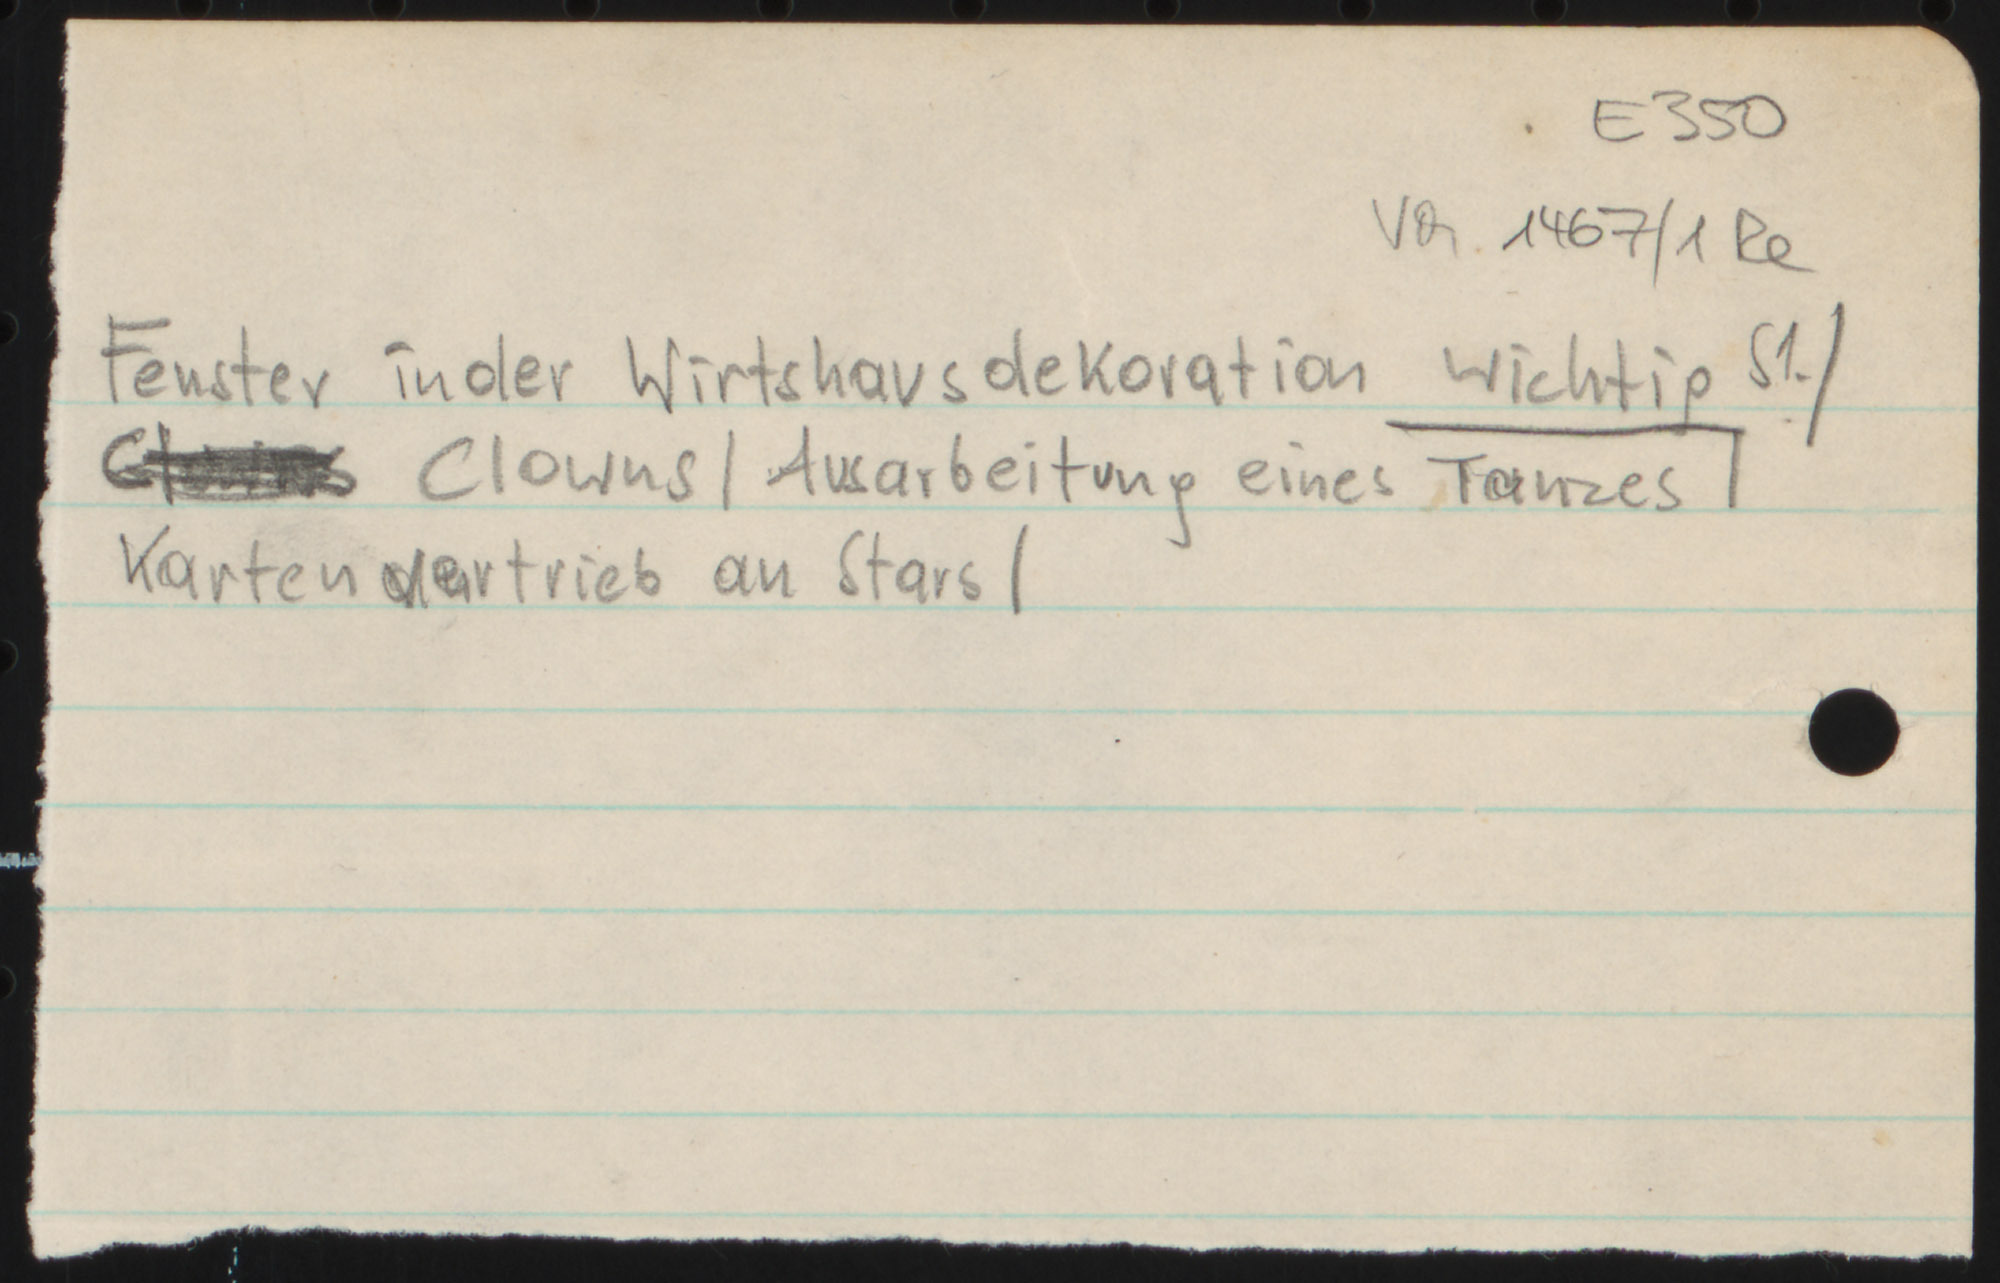 E350
Vor. 1467/1 Re
Fenster in der Wirtshausdekoration wichtig S1./
Clowns / Ausarbeitung eines Tanzes /
Karten an Stars /